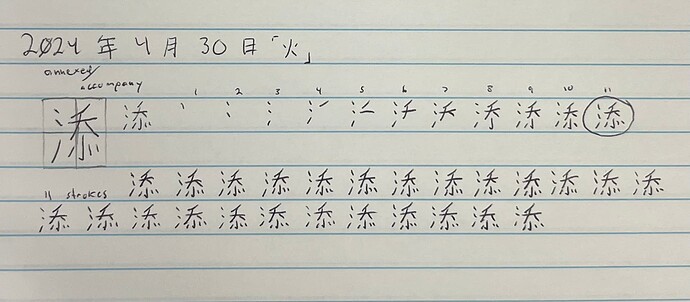 2024 年 4 月 30 日「火」
annexed/
accompany
1 2 3 4 5 6 7 8 9 10 11
添 添 添
11 strokes 添 添 添 添 添 添 添 添 添 添 添 添 添
添 添 添 添 添 添 添 添 添 添 添 添